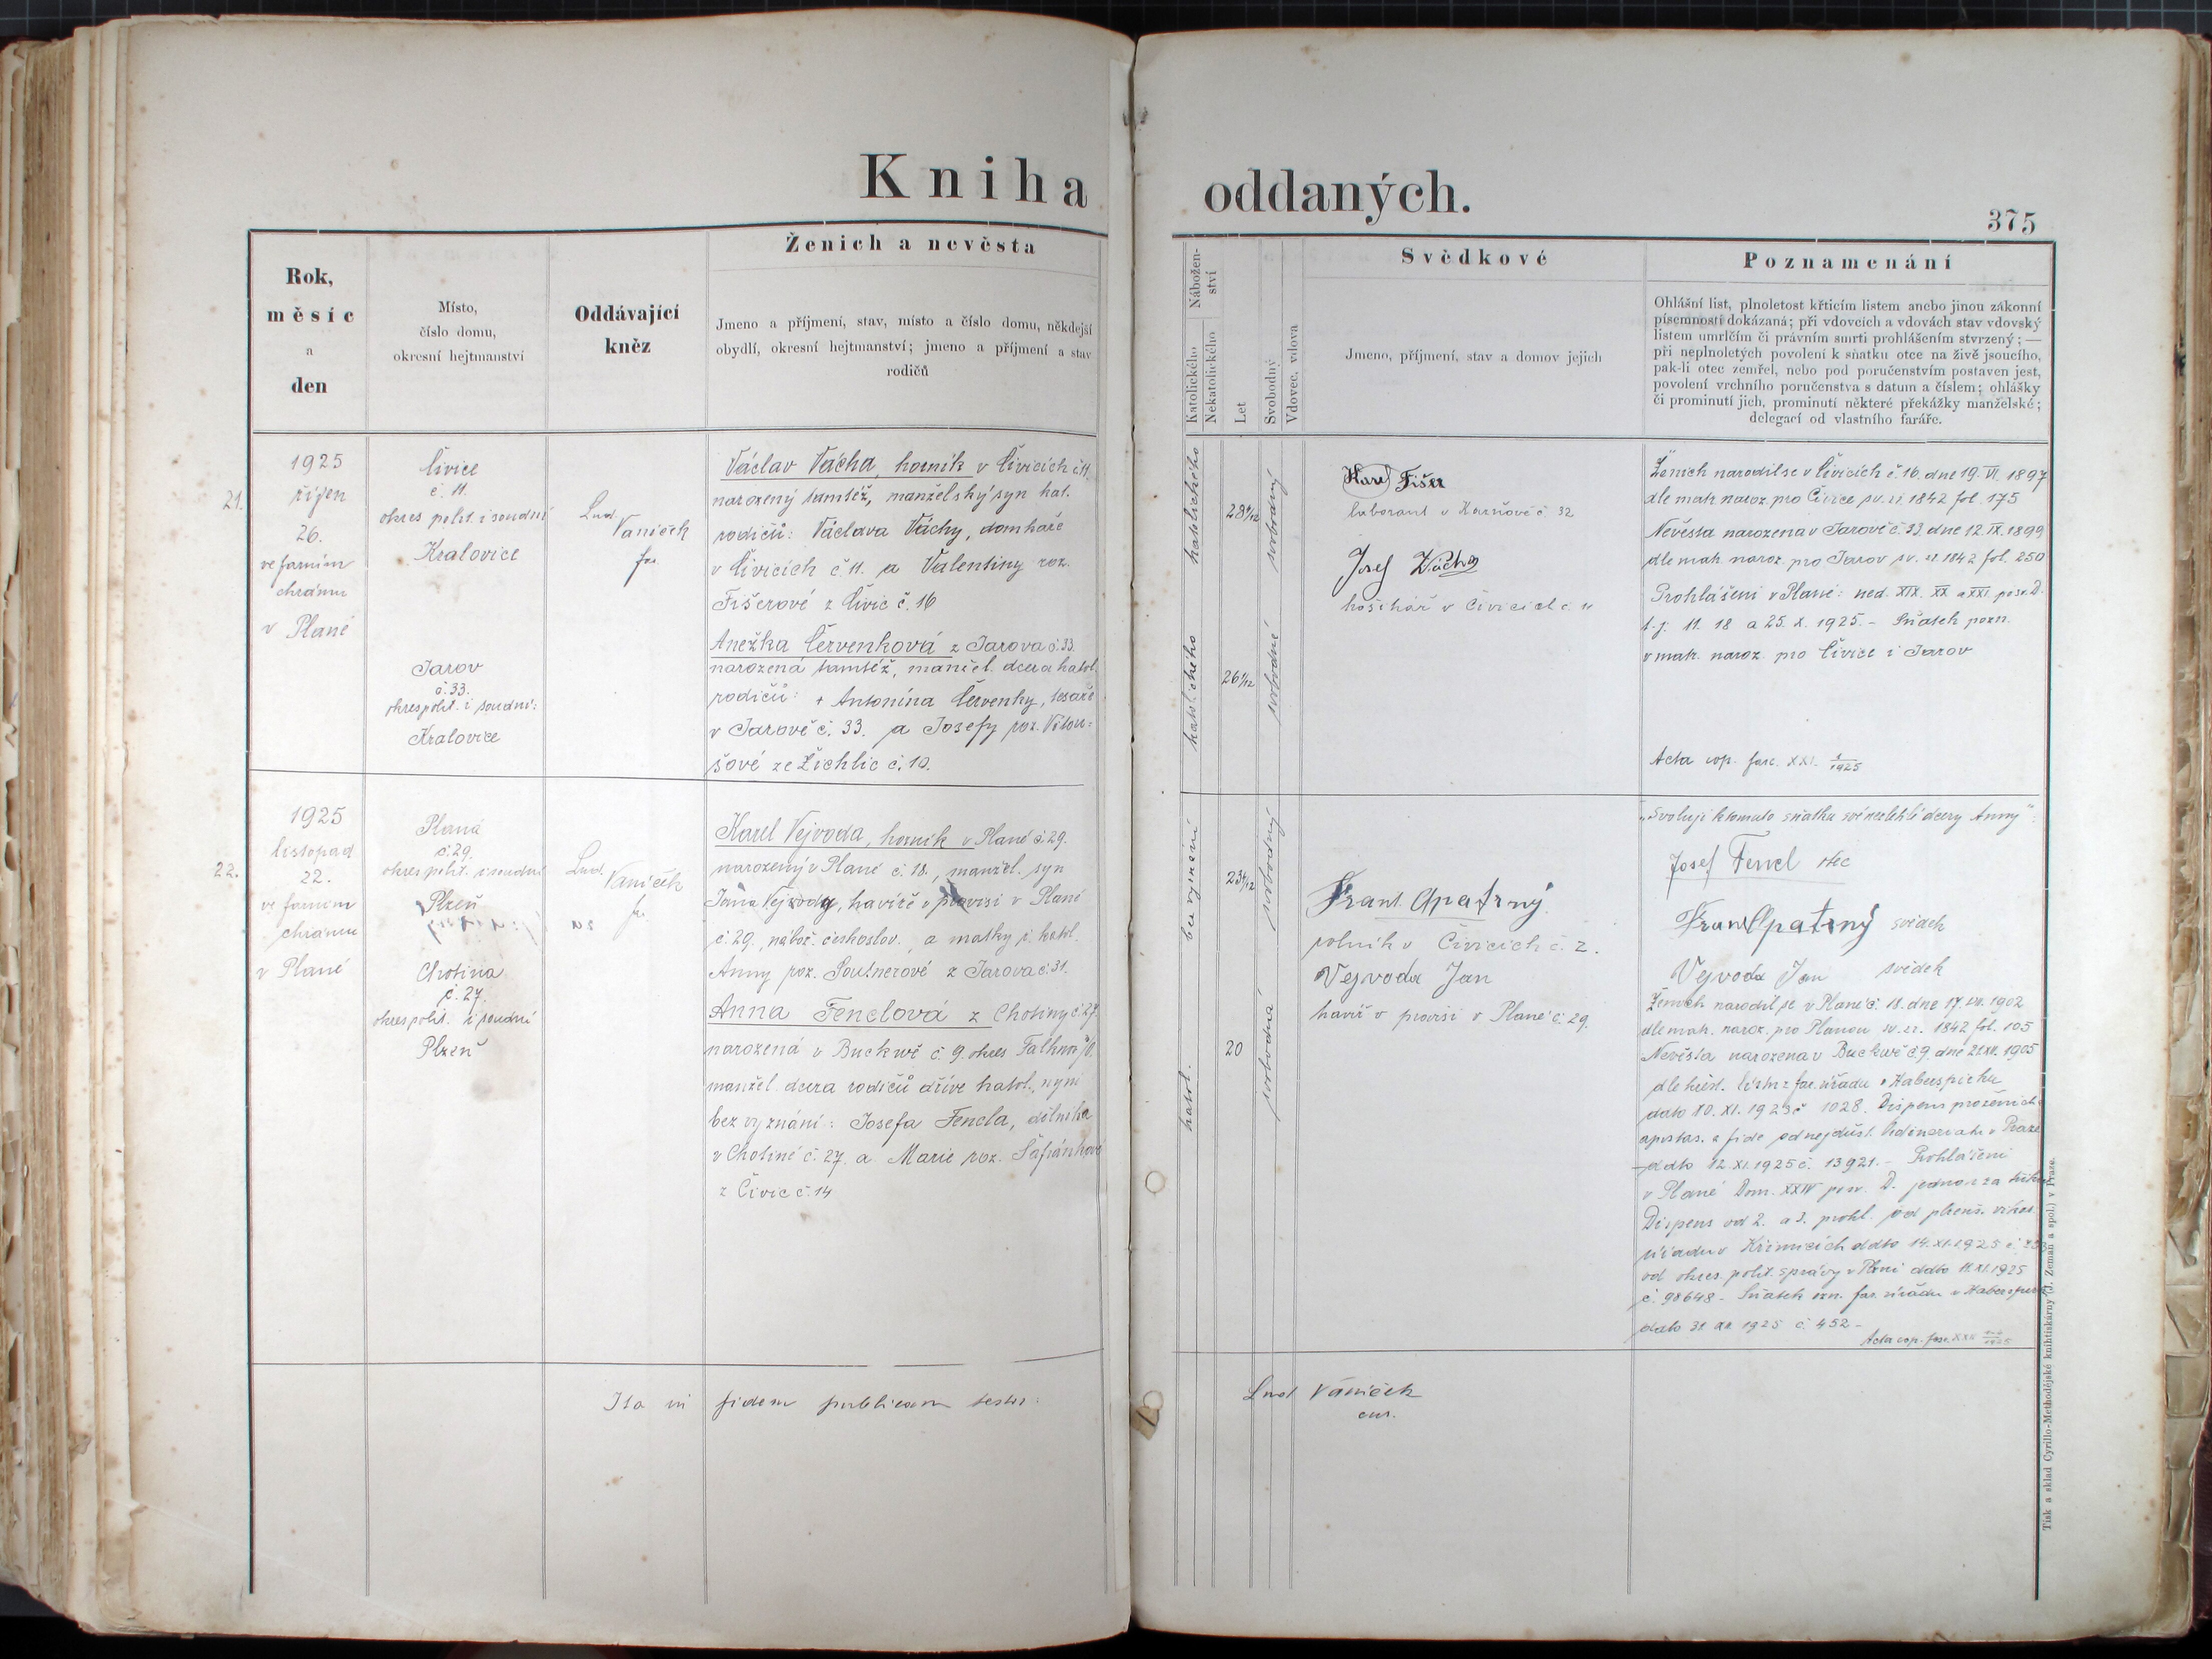 Kniha oddaných.
375
Rok,
měsíc
a
den
Místo,
číslo domu,
okresní hejtmanství
Oddávající
kněz
Ženich a nevěsta
Jmeno a příjmení, stav, místo a číslo domu, někdejší
obydlí, okresní hejtmanství; jmeno a příjmení a stav
rodičů
Nábožen-
ství
Katolického
Nekatolického
Let
Svobodný
Vdovec, vdova
Svědkové
Jmeno, příjmení, stav a domov jejich
Poznamenání
Ohlášní list, plnoletost křticím listem anebo jinou zákonní
písemností dokázaná; při vdovcích a vdovách stav vdovský
listem úmrlčím či právním smrti prohlášením stvrzený; —
při neplnoletých povolení k sňatku otce na živě jsoucího,
pak-li otec zemřel, nebo pod poručenstvím postaven jest,
povolení vrchního poručenstva s datum a číslem; ohlášky
či prominutí jich, prominutí některé překážky manželské;
delegací od vlastního faráře.
21.
1925
říjen
26.
ve farním
chrámu
v Plané
Čivice
č. 11.
okres polit. i soudní
Kralovice
Jarov
č. 33.
okres polit. i soudní:
Kralovice
Lud.
Vaníček
far.
Václav Vácha, horník v Čivicích č. 11.
narozený tamtéž, manželský syn kat.
rodičů: Václava Váchy, domkaře
v Čivicích č. 11. a Valentiny roz.
Fišerové z Čivic č. 16
Anežka Červenková z Jarova č. 33.
narozená tamtéž, manžel. dcera katol.
rodičů: + Antonína Červenky, tesaře
v Jarově č. 33. a Josefy roz. Vitou=
šové ze Žichlic č. 10.
katolického
katolického
28 4/12
26 1/12
svobodný
svobodná
Karel Fišer
laborant v Karňově č 32
Josef Vácha
košikář v Čivicích č. 11
Ženich narodil se v Čivicích č. 16. dne 19. VI. 1897
dle matr. naroz. pro Čivice sv. 1842 fol. 175
Nevěsta narozena v Jarově č. 33. dne 12. IX. 1899
dle matr. naroz. pro Jarov sv. 1842 fol. 250
Prohlášeni v Plané: ned. XIX. XX. a XXI. po sv. D.
t. j. 11. 18 a 25. X. 1925. - Sňatek pozn.
v matr. naroz. pro Čivice i Jarov
Acta cop. fasc. XXI. 1925
22.
1925
listopad
22.
ve farním
chrámu
v Plané
Planá
č. 29.
okres polit. i soudní
Plzeň
Chotina
č. 27.
okres polit. i soudní
Plzeň
Lud. Vaníček
far.
Karel Vejvoda, horník v Plané č. 29.
narozený v Plané č. 18., manžel. syn
Jana Vejvody, havíře v provisi v Plané
č. 29., nábož. českoslov., a matky ř. katol.
Anny roz. Soutnerové z Jarova č. 31.
Anna Fenclová z Chotiny č. 27.
narozená v Buckwě č. 9. okres Falknov
manžel. dcera rodičů dříve katol., nyní
bez vyznání: Josefa Fencla, dělníka
v Chotině č. 27. a Marie roz. Šafránkové
z Čivic č. 14
bez vyznání
katol.
23 4/12
20
svobodný
svobodná
Frant. Opatrný
rolník v Čivicích č. 2.
Vejvoda Jan
havíř v provisi v Plané č. 29.
„Svoluji k tomuto sňatku své nezletilé dcery Anny":
Josef Fencl otec
Frant Opatrný svědek
Vejvoda Jan svědek
Ženich narodil se v Plané č. 18. dne 17. 1902
dle matr. naroz. pro Planou sv. 1842 fol. 105
Nevěsta narozena v Buckwě č. 9. dne 1905
dle křest. listu z far. úřadu v Haberspirku
ddto 10. XI. 1925 č 1028. Dispens pro ženicha
apostas. a fide od nejdůst. Ordinariatu v Praze
ddto 12. XI. 1925 č. 13921. - Prohlášeni
v Plané Dom. XXIV po sv. D. jednou za třikrát
Dispens od 2. a 3. prohl. od plzeň. vikar.
úřadu v Křimicích ddto 14. XI. 1925
od okres. polit. správy v Plzni ddto XI. 1925
č. 98648 - Sňatek ozn. far. úřadu v Haberspirku
ddto 31. XII. 1925 č. 452 -
Acta cop. fasc. XXI 1925
Ita in fidem publicam testor:
Lud Vaníček
cur.
Tisk a sklad Cyrillo-Methodějské knihtiskárny (J. Zeman a spol.) v Praze.